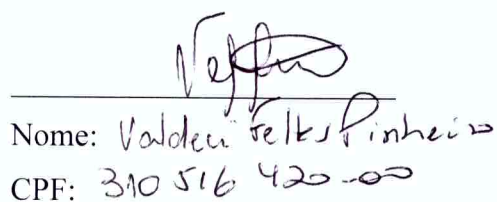 Nome: Valdeci Feltes Pinheiro
CPF: 310 516 420-00